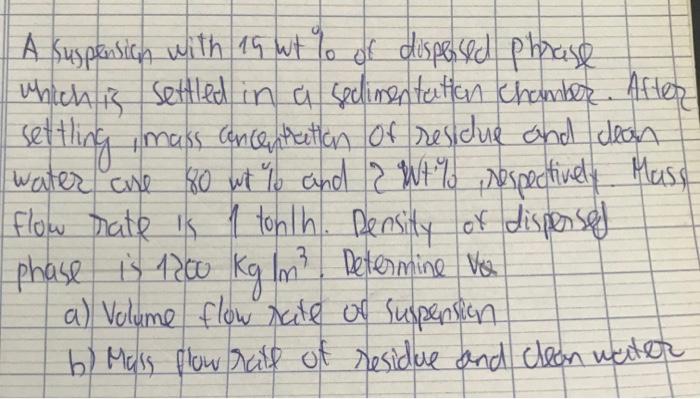 A suspension with 15 wt % of dispersed phrase
which is settled in a sedimentation chamber. After
settling, mass concentration of residue and clean
water are 80 wt % and 2 wt %, respectively. Mass
flow rate is 1 ton/h. Density of dispersed
phase is 1200 kg/m³. Determine
a) Volume flow rate of suspension
b) Mass flow rate of residue and clean water